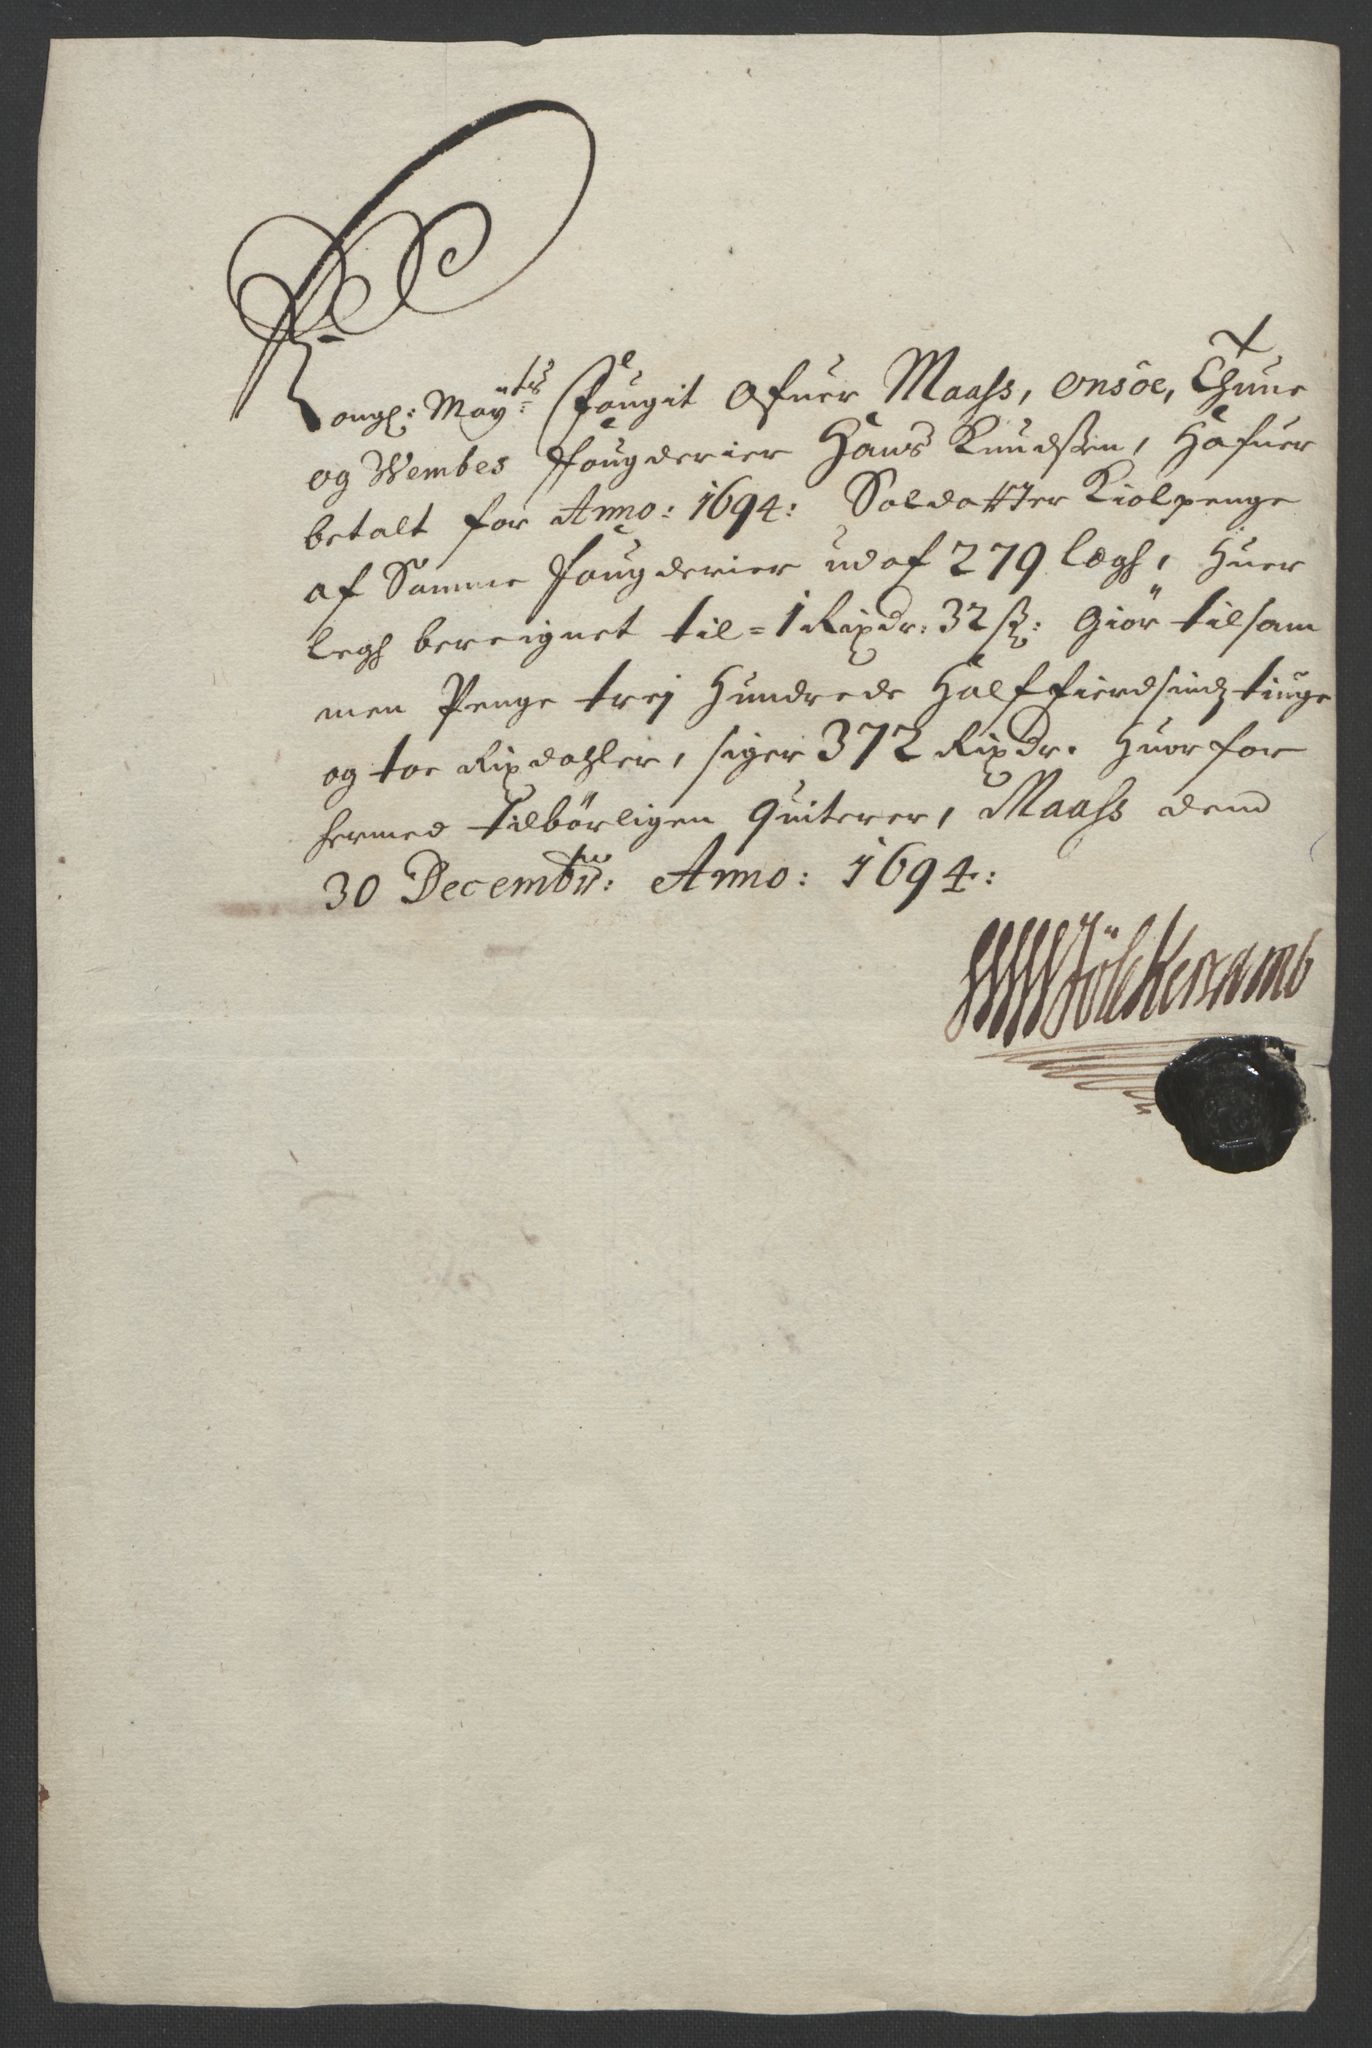 Kongl: May^ts: Fougit Ofuer Maass, Onsöe, Thune
og Wembes Fougderier Hans Knudssen, Hafuer
betalt for Anno: 1694: Soldatter Kiolpenge
af Samme Fougderier ud af 279 lægh, Huer
legh bereignet til = 1 Rixdr: 32 sz: Giör tilsam
men Penge trej Hundrede Halffierdsindz tiuge
og toe Rixdahler, siger 372 Rixdr. Huorfor
hermed tilbörligen quiterer, Maass dend
30 Decembr: Anno: 1694: